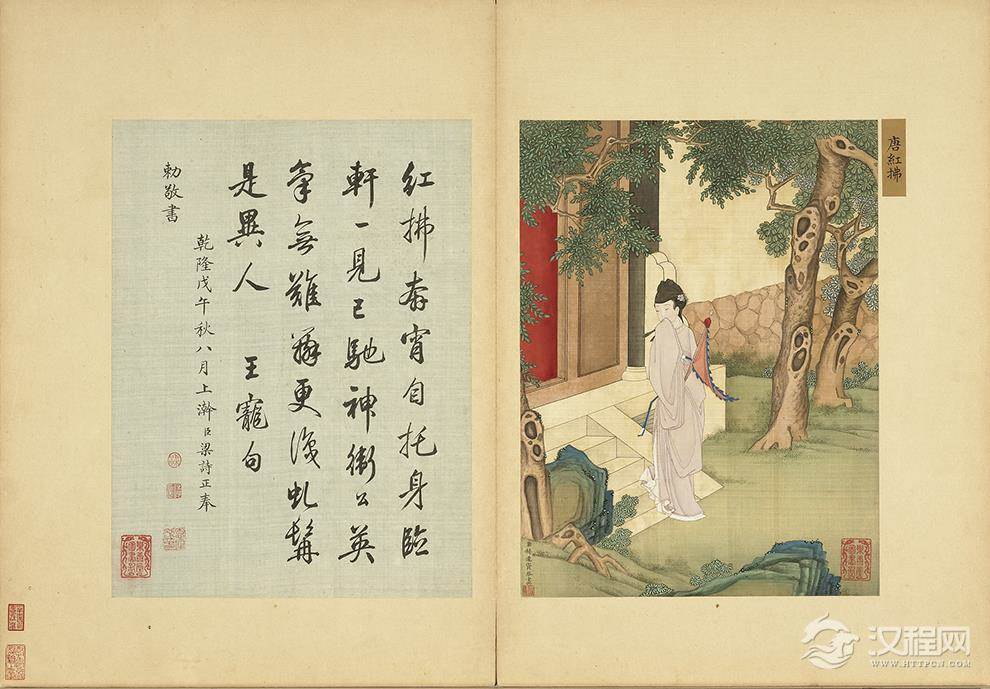 唐紅拂
臣赫達資恭畫
紅拂奔宵自托身臨
軒一見已馳神衛公英
氣無難更復虬髯
是異人 王寵句
乾隆戊午秋八月上澣臣梁詩正奉
勅敬書
汉程网
WWW.HTTPCN.COM